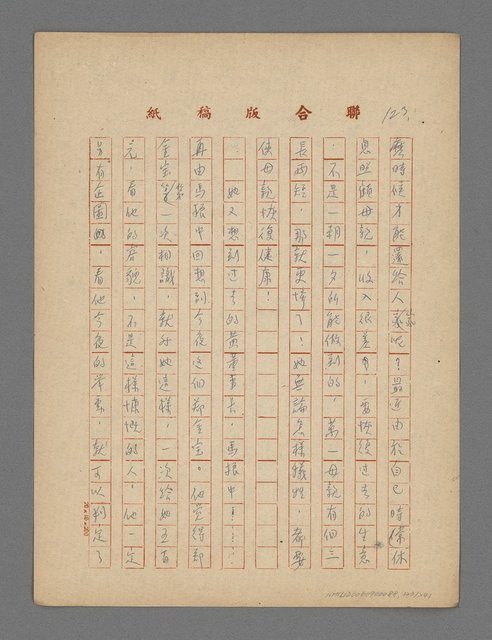 聯合版稿紙
123.
麼時候才能還給人家呢？最近由於自己時常休
息照顧母親，收入很差了，要恢復過去的生意
，不是一朝一夕所能做到的，萬一母親有個三
長兩短，那就更壞了！她無論怎樣犧牲，都要
使母親恢復健康！
她又想到過去的黃董事長，馬振中！……
再由馬振中回想到今夜這個鄭金宝。他覺得鄭
金宝第一次相識，就對她這樣，一次給她五百
元，看他的容貌，不是這樣慷慨的人，他一定
另有企圖的，看他今夜的舉動，就可以判定了